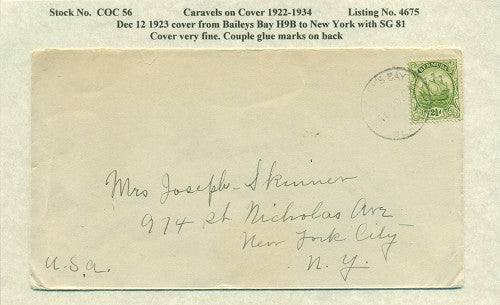 Stock No. COC 56 Caravels on Cover 1922-1934 Listing No. 4675
Dec 12 1923 cover from Baileys Bay H9B to New York with SG 81
Cover very fine. Couple glue marks on back
BAY
BERMUDA
2½d
Mrs Joseph-Skinner
974 St Nicholas Ave
New York City
N.Y.
U.S.a.